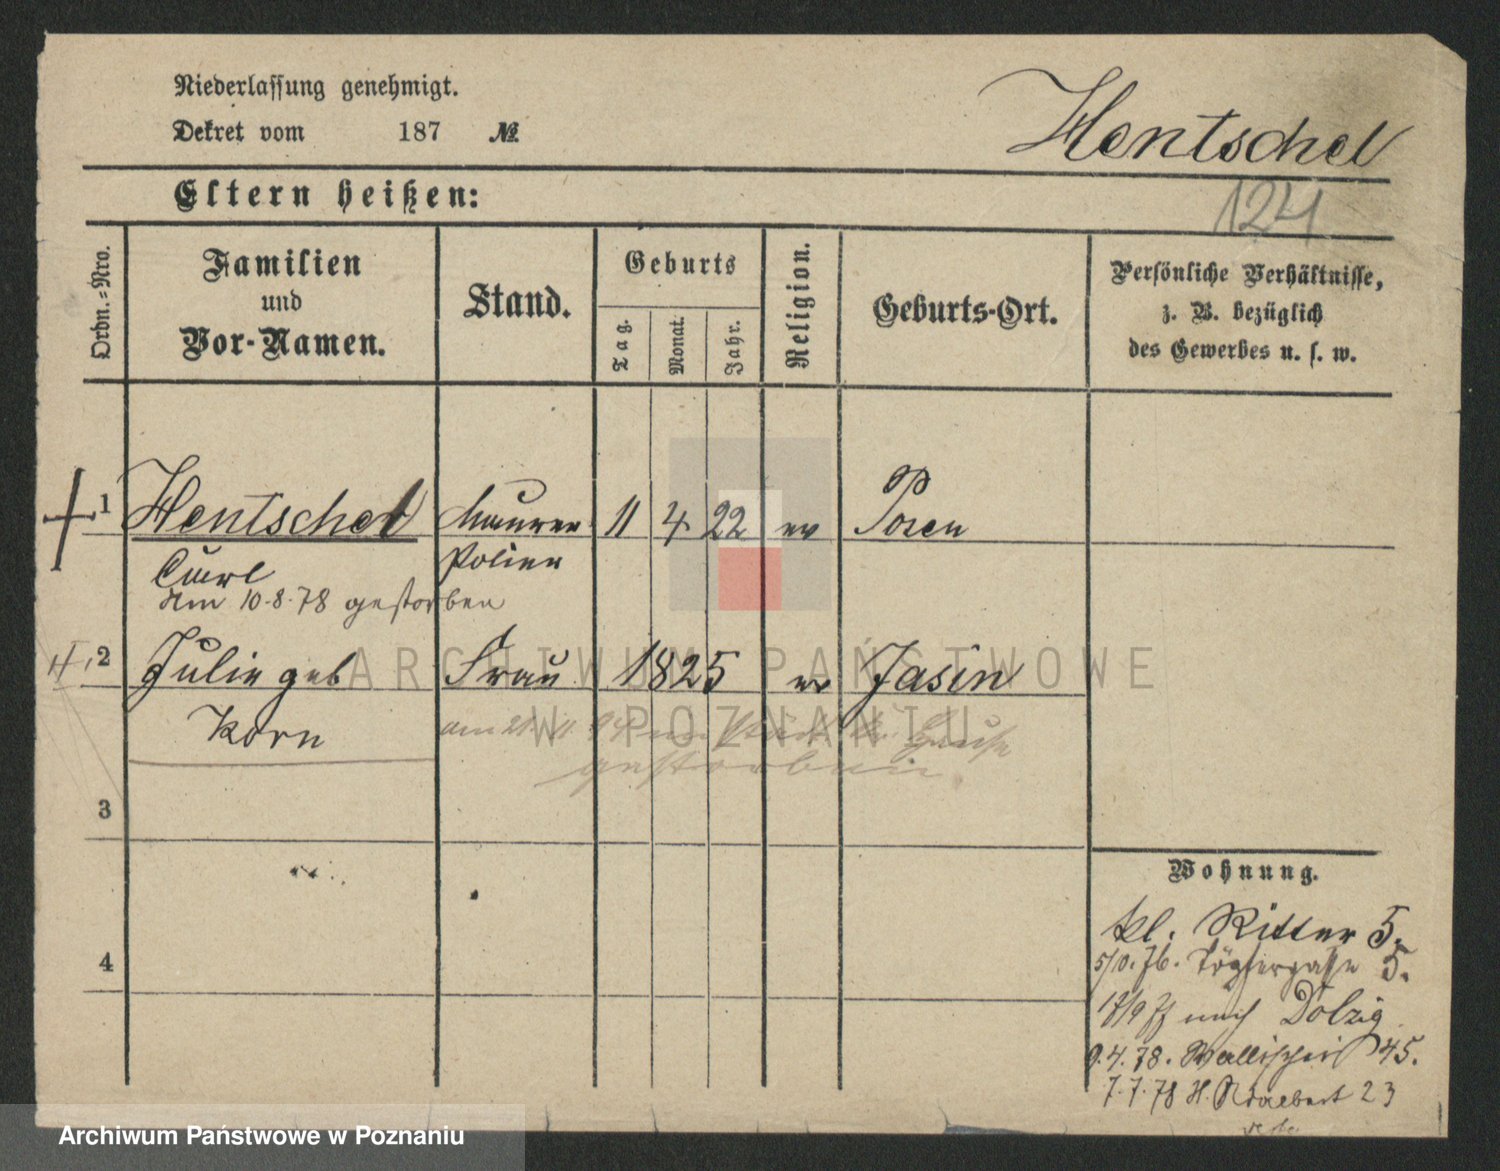 Niederlassung genehmigt.
Dekret vom 187 №
Hentschel
124
Eltern heißen:
Ordn.-Nro.
Familien
und
Vor-Namen.
Stand.
Geburts
Tag.
Monat.
Jahr.
Religion.
Geburts-Ort.
Persönliche Verhältnisse,
z. B. bezüglich
des Gewerbes u. s. w.
1 Hentschel Maurer 11 4 22 ev Posen
Carl Polier
am 10.8.78 gestorben
2 Julie geb Frau 1825 ev Jasin
Korn
am
gestorben
ARCHIWUM PAŃSTWOWE
W POZNANIU
3
4
Wohnung.
kl. Ritter 5.
5/10.76. Töpfergasse 5.
nach Dolzig
9.4.78. Wallischei 45.
7.7.78 St. Adalbert 23
Archiwum Państwowe w Poznaniu